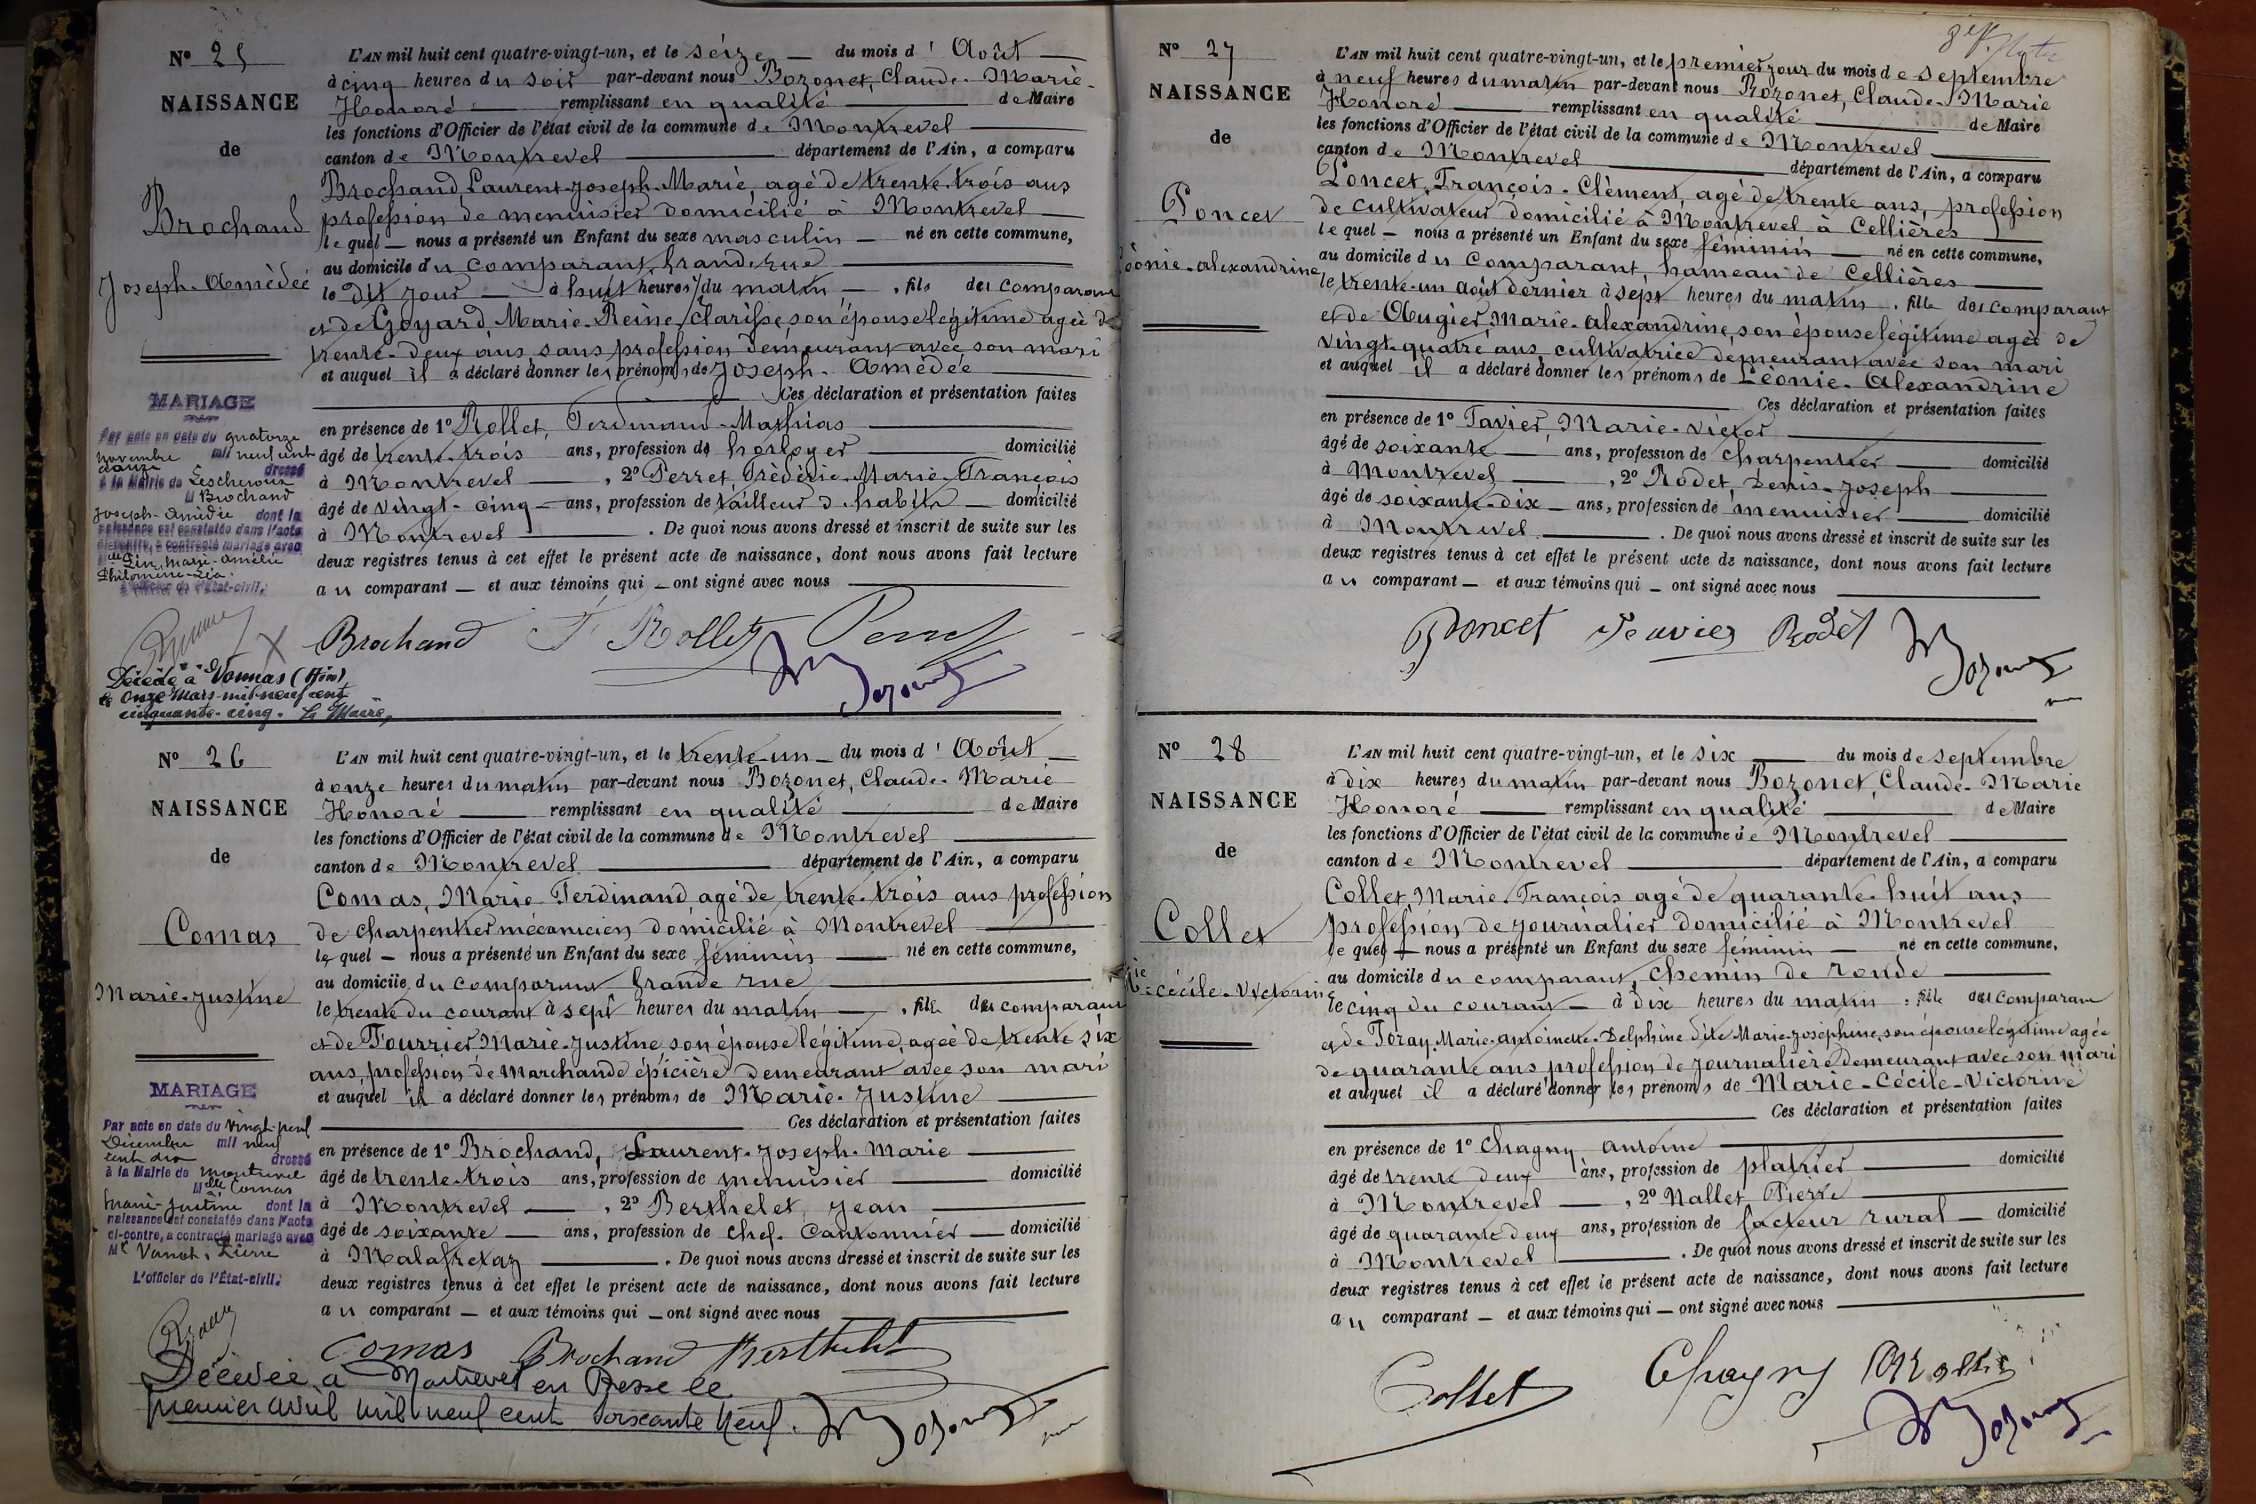 Nº 25
NAISSANCE
de
Brochand
Joseph-Amédée
L'AN mil huit cent quatre-vingt-un, et le seize — du mois d' Août —
à cinq heures du soir par-devant nous Bozonet, Claude-Marie
Honoré — remplissant en qualité — de Maire
les fonctions d'Officier de l'état civil de la commune de Montrevel —
canton de Montrevel — département de l'Ain, a comparu
Brochand, Laurent-Joseph-Marie, agé de trente-trois ans
profession de menuisier domicilié à Montrevel —
lequel — nous a présenté un Enfant du sexe masculin — né en cette commune,
au domicile du comparant, Grande rue —
le dit jour — à huit heures du matin —, fils du comparant
et de Goyard, Marie-Reine-Clarisse, son épouse légitime agée de
trente-deux ans, sans profession demeurant avec son mari
et auquel il a déclaré donner les prénoms de Joseph-Amédée —
Ces déclaration et présentation faites
en présence de 1º Rollet, Ferdinand-Mathias —
âgé de trente-trois ans, profession de horloger — domicilié
à Montrevel —, 2º Perret, Frédéric-Marie-François
âgé de vingt-cinq — ans, profession de tailleur d'habits — domicilié
à Montrevel — . De quoi nous avons dressé et inscrit de suite sur les
deux registres tenus à cet effet le présent acte de naissance, dont nous avons fait lecture
au comparant — et aux témoins qui — ont signé avec nous —
Brochand F Rollet Perret
Bozonet
MARIAGE
Par acte en date du quatorze
novembre mil neuf cent
onze dressé
à la Mairie de Lescheroux
M Brochand
Joseph-Amédée dont la
naissance est constatée dans l'acte
ci-contre, a contracté mariage avec
Marie-Amélie
Philomène-Léa.
L'officier de l'État-civil:
Décédé à Vonnas (Ain)
le onze Mars mil neuf cent
cinquante-cinq. Le Maire,
Nº 26
NAISSANCE
de
Comas
Marie-Justine
L'AN mil huit cent quatre-vingt-un, et le trente-un — du mois d' Août —
à onze heures du matin par-devant nous Bozonet, Claude-Marie
Honoré — remplissant en qualité — de Maire
les fonctions d'Officier de l'état civil de la commune de Montrevel —
canton de Montrevel — département de l'Ain, a comparu
Comas, Marie-Ferdinand, agé de trente-trois ans profession
de charpentier mécanicien domicilié à Montrevel —
lequel — nous a présenté un Enfant du sexe féminin — né en cette commune,
au domicile du comparant Grande rue —
le trente du courant à sept heures du matin —, fille du comparant
et de Fourrier Marie-Justine son épouse légitime, agée de trente six
ans, profession de Marchande épicière demeurant avec son mari
et auquel il a déclaré donner les prénoms de Marie-Justine —
Ces déclaration et présentation faites
en présence de 1º Brochand, Laurent-Joseph-Marie —
âgé de trente-trois ans, profession de menuisier — domicilié
à Montrevel —, 2º Berthelet, Jean —
âgé de soixante — ans, profession de chef-cantonnier — domicilié
à Malafretaz — . De quoi nous avons dressé et inscrit de suite sur les
deux registres tenus à cet effet le présent acte de naissance, dont nous avons fait lecture
au comparant — et aux témoins qui — ont signé avec nous —
Comas Brochand Berthelet
Bozonet
MARIAGE
Par acte en date du vingt-neuf
Décembre mil neuf
cent dix dressé
à la Mairie de Montrevel
Melle Comas
Marie-Justine dont la
naissance est constatée dans l'acte
ci-contre, a contracté mariage avec
Mr Vanot, Pierre
L'officier de l'État-civil:
Décédée à Montrevel en Bresse le
premier avril mil neuf cent soixante neuf.
Nº 27
NAISSANCE
de
Poncet
Léonie-Alexandrine
L'AN mil huit cent quatre-vingt-un, et le premier jour du mois de septembre
à neuf heures du matin par-devant nous Bozonet, Claude-Marie
Honoré — remplissant en qualité — de Maire
les fonctions d'Officier de l'état civil de la commune de Montrevel —
canton de Montrevel — département de l'Ain, a comparu
Poncet, François-Clément, agé de trente ans, profession
de cultivateur domicilié à Montrevel à Cellières —
lequel — nous a présenté un Enfant du sexe féminin — né en cette commune,
au domicile du comparant, hameau de Cellières —
le trente-un août dernier à sept heures du matin, fille du comparant
et de Augier, Marie-Alexandrine, son épouse légitime agée de
vingt-quatre ans, cultivatrice demeurant avec son mari
et auquel il a déclaré donner les prénoms de Léonie-Alexandrine
Ces déclaration et présentation faites
en présence de 1º Tavier, Marie-Victor —
âgé de soixante — ans, profession de charpentier — domicilié
à Montrevel —, 2º Rodet, Denis-Joseph —
âgé de soixante-dix — ans, profession de menuisier — domicilié
à Montrevel — . De quoi nous avons dressé et inscrit de suite sur les
deux registres tenus à cet effet le présent acte de naissance, dont nous avons fait lecture
au comparant — et aux témoins qui — ont signé avec nous —
Poncet Rodet
Bozonet
Nº 28
NAISSANCE
de
Collet
Mie Cécile-Victorine
L'AN mil huit cent quatre-vingt-un, et le six — du mois de septembre
à dix heures du matin par-devant nous Bozonet, Claude-Marie
Honoré — remplissant en qualité — de Maire
les fonctions d'Officier de l'état civil de la commune de Montrevel —
canton de Montrevel — département de l'Ain, a comparu
Collet, Marie-François agé de quarante-huit ans
profession de journalier domicilié à Montrevel
lequel — nous a présenté un Enfant du sexe féminin — né en cette commune,
au domicile du comparant, chemin de ronde —
le cinq du courant — à dix heures du matin, fille du comparant
et de Foray, Marie-Antoinette-Delphine dite Marie-Joséphine, son épouse légitime agée
de quarante ans profession de journalière demeurant avec son mari
et auquel il a déclaré donner les prénoms de Marie-Cécile-Victorine
Ces déclaration et présentation faites
en présence de 1º Chagny, Antoine —
âgé de trente deux ans, profession de platrier — domicilié
à Montrevel —, 2º Mallet, Pierre —
âgé de quarante deux ans, profession de facteur rural — domicilié
à Montrevel — . De quoi nous avons dressé et inscrit de suite sur les
deux registres tenus à cet effet le présent acte de naissance, dont nous avons fait lecture
au comparant — et aux témoins qui — ont signé avec nous —
Collet Chagny
Bozonet